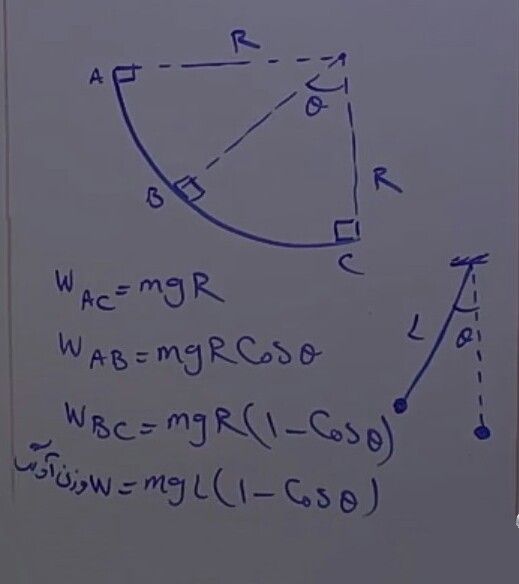 R
A
θ
B
R
C
W_AC = mgR
L
θ
W_AB = mgR Cosθ
W_BC = mgR(1 - Cosθ)
وزن آونگ W = mgL(1 - Cosθ)